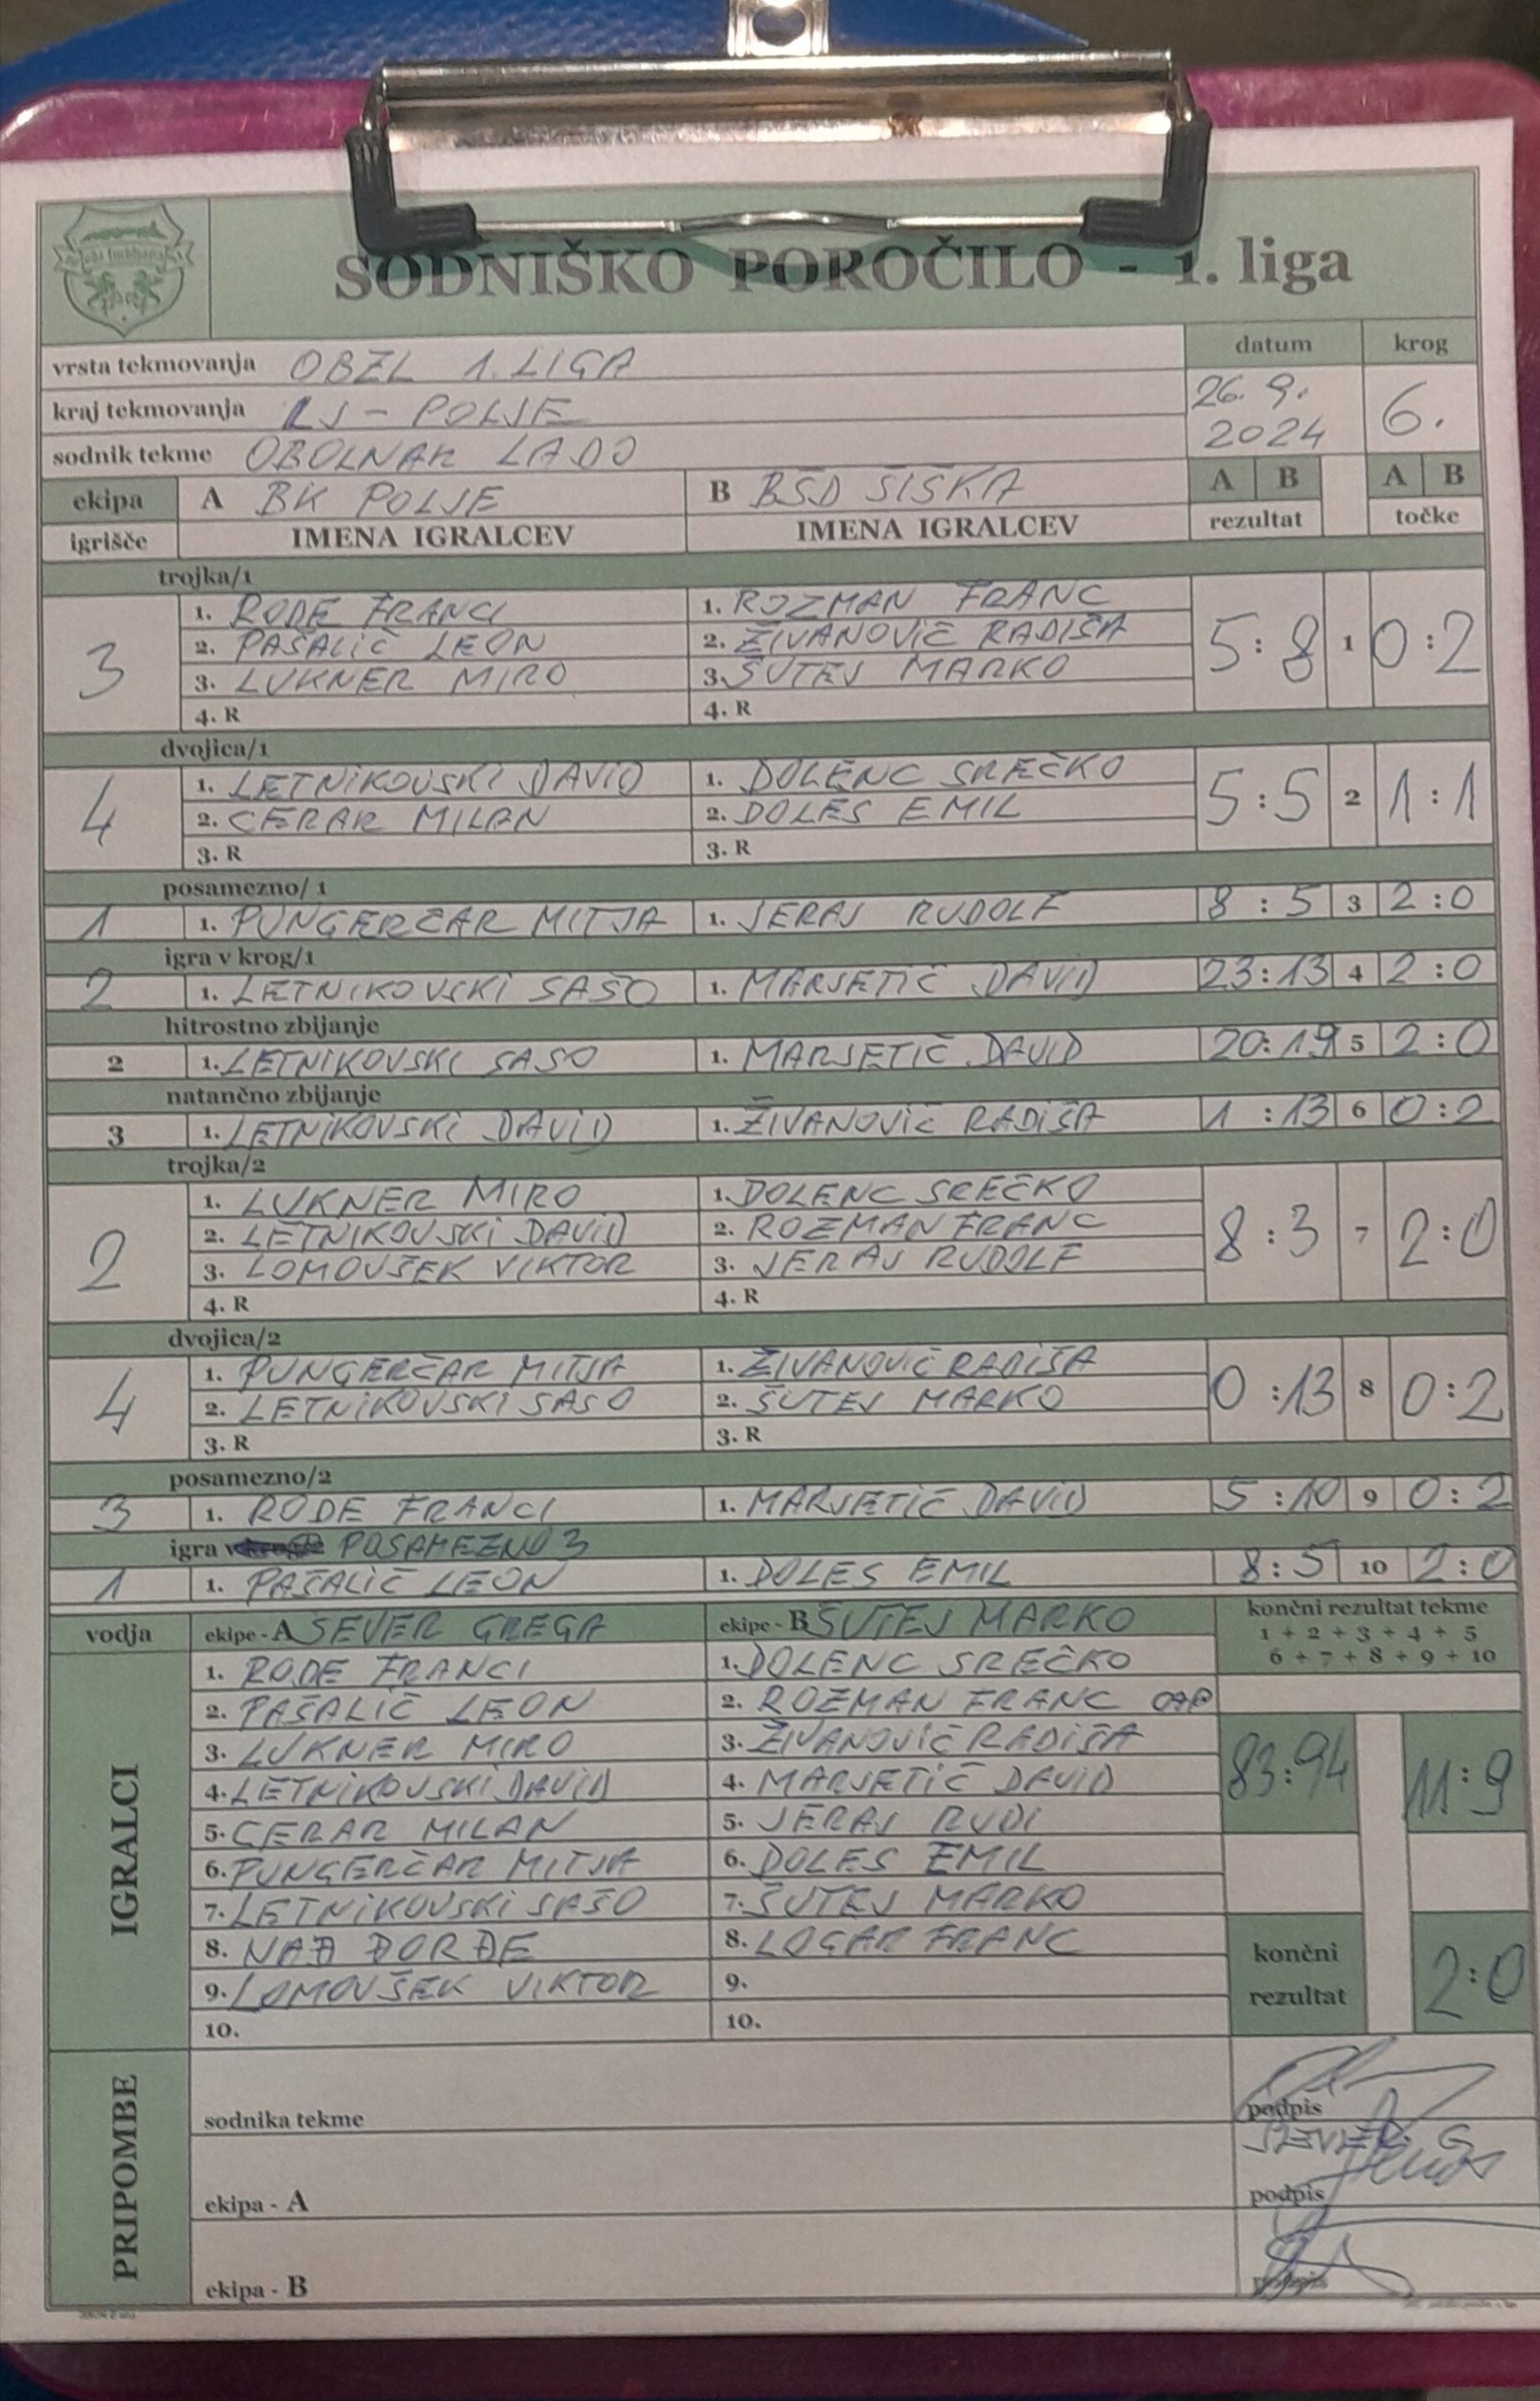 SODNIŠKO POROČILO - 1. liga
vrsta tekmovanja OBZL 1. LIGA datum krog
kraj tekmovanja LJ - POLJE 26. 9. 2024 6.
sodnik tekme OBOLNAR LADO
ekipa A BK POLJE B BŠD ŠIŠKA A B A B
igrišče IMENA IGRALCEV IMENA IGRALCEV rezultat točke
trojka/1
1. RODE FRANCI 1. ROZMAN FRANC
3 2. PAŠALIČ LEON 2. ŽIVANOVIČ RADIŠA 5 : 8 1 0 : 2
3. LUKNER MIRO 3. ŠUTEJ MARKO
4. R 4. R
dvojica/1
1. LETNIKOVSKI DAVID 1. DOLENC SREČKO
4 2. CERAR MILAN 2. DOLES EMIL 5 : 5 2 1 : 1
3. R 3. R
posamezno/ 1
1 1. PUNGERČAR MITJA 1. JERAJ RUDOLF 8 : 5 3 2 : 0
igra v krog/1
2 1. LETNIKOVSKI SAŠO 1. MARJETIČ DAVID 23 : 13 4 2 : 0
hitrostno zbijanje
2 1. LETNIKOVSKI SASO 1. MARJETIČ DAVID 20 : 19 5 2 : 0
natančno zbijanje
3 1. LETNIKOVSKI DAVID 1. ŽIVANOVIČ RADIŠA 1 : 13 6 0 : 2
trojka/2
1. LUKNER MIRO 1. DOLENC SREČKO
2 2. LETNIKOVSKI DAVID 2. ROZMAN FRANC 8 : 3 7 2 : 0
3. LOMOVŠEK VIKTOR 3. JERAJ RUDOLF
4. R 4. R
dvojica/2
1. PUNGERČAR MITJA 1. ŽIVANOVIČ RADIŠA
4 2. LETNIKOVSKI SASO 2. ŠUTEJ MARKO 0 : 13 8 0 : 2
3. R 3. R
posamezno/2
3 1. RODE FRANCI 1. MARJETIČ DAVID 5 : 10 9 0 : 2
igra v POSAMEZNO 3
1 1. PAŠALIČ LEON 1. DOLES EMIL 8 : 5 10 2 : 0
vodja ekipe - A SEVER GREGA ekipe - B ŠUTEJ MARKO končni rezultat tekme
1 + 2 + 3 + 4 + 5
6 + 7 + 8 + 9 + 10
IGRALCI
1. RODE FRANCI 1. DOLENC SREČKO
2. PAŠALIČ LEON 2. ROZMAN FRANC CAP
3. LUKNER MIRO 3. ŽIVANOVIČ RADIŠA
4. LETNIKOVSKI DAVID 4. MARJETIČ DAVID 83 : 94 11 : 9
5. CERAR MILAN 5. JERAJ RUDI
6. PUNGERČAR MITJA 6. DOLES EMIL
7. LETNIKOVSKI SAŠO 7. ŠUTEJ MARKO
8. NAĐ ĐORĐE 8. LOGAR FRANC
9. LOMOVŠEK VIKTOR 9.
10. 10.
končni rezultat 2 : 0
PRIPOMBE
sodnika tekme podpis
SEVER G
ekipa - A podpis
ekipa - B podpis